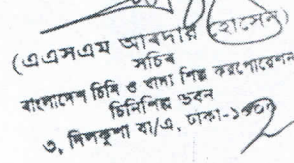 (এএসএম আবদার হোসেন)
সচিব
বাংলাদেশ চিনি ও খাদ্য শিল্প করপোরেশন
চিনিশিল্প ভবন
৩, দিলকুশা বা/এ, ঢাকা-১০০০